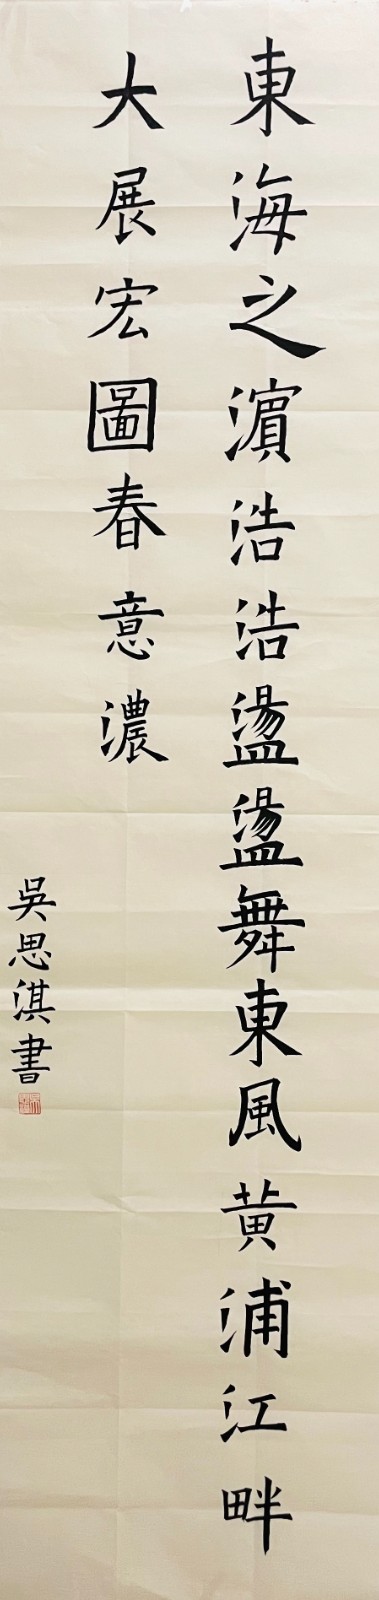 東海之濵浩浩盪盪舞東風黄浦江畔
大展宏圖春意濃
吳思淇書